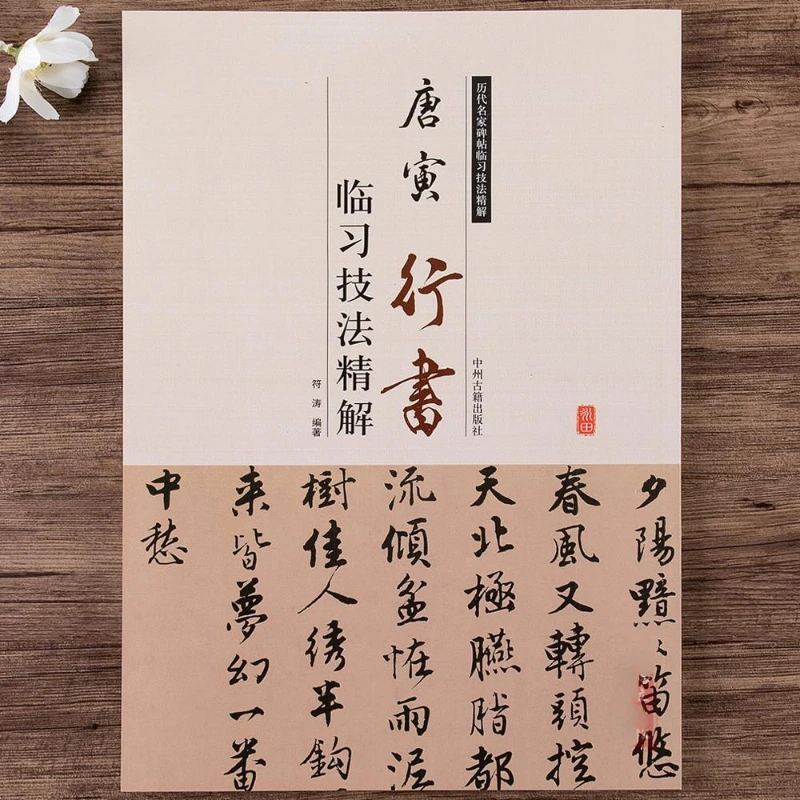 历代名家碑帖临习技法精解
中州古籍出版社
唐寅行書
临习技法精解
符涛 编著
夕陽黯〻笛悠
春風又轉頭控
天北極臙脂都
流傾盆怪雨泥
樹佳人绣半鈎
来皆夢幻一番
中愁